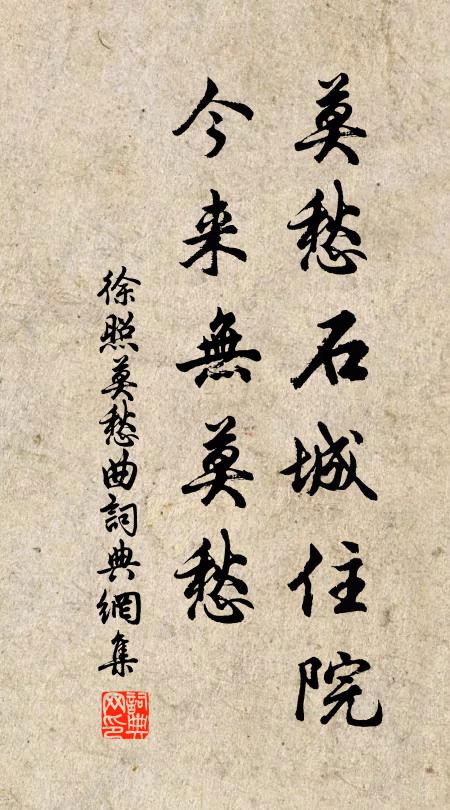 莫愁石城住院
今来無莫愁
徐照莫愁曲詞典網集
詞典网印